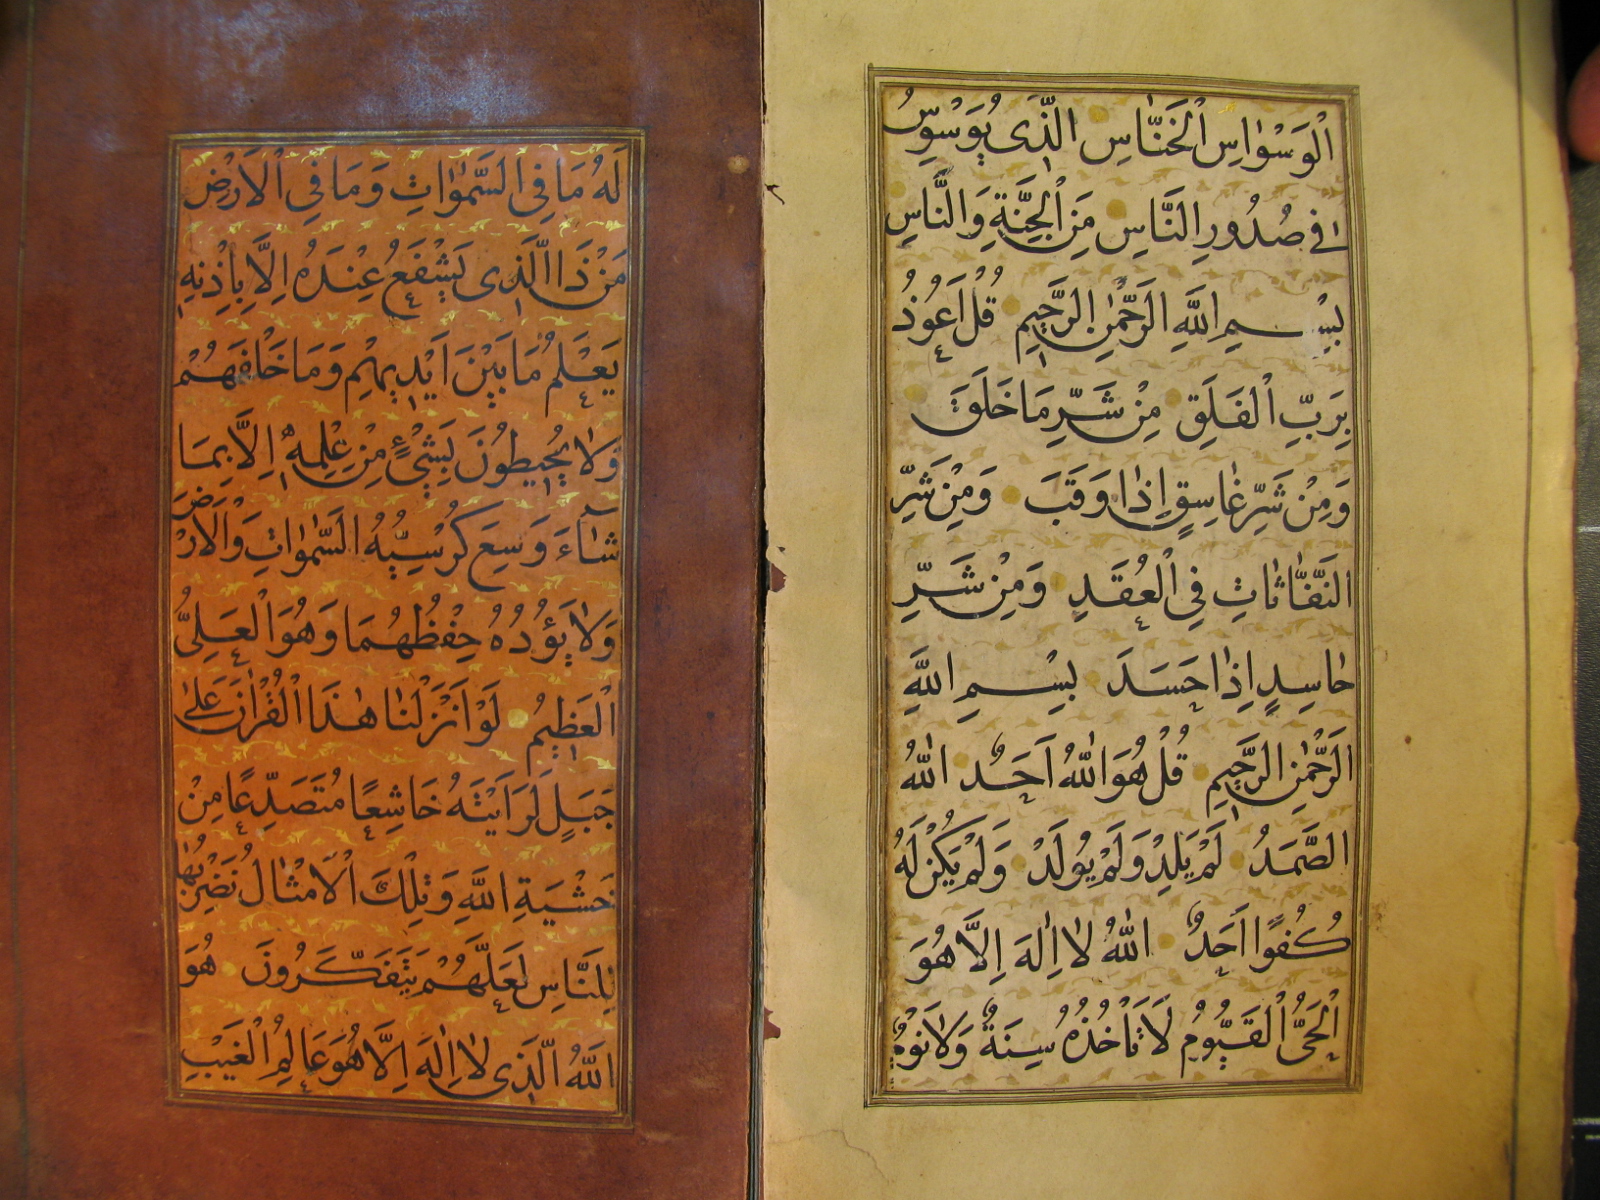 الْوَسْوٰاسِ الْخَنّٰاسِ الَّذِى يُوَسْوِسُ
فِى صُدُورِ النَّاسِ مِنَ الْجِنَّةِ وَالنَّاسِ
بِسْمِ اللَّهِ الرَّحْمٰنِ الرَّحِيمِ قُلْ اَعُوذُ
بِرَبِّ الْفَلَقِ مِنْ شَرِّ مَا خَلَقَ
وَمِنْ شَرِّ غٰاسِقٍ اِذٰا وَقَبَ وَمِنْ شَرِّ
النَّفّٰاثٰاتِ فِى الْعُقَدِ وَمِنْ شَرِّ
حٰاسِدٍ اِذٰا حَسَدَ بِسْمِ اللَّهِ
الرَّحْمٰنِ الرَّحِيمِ قُلْ هُوَ اللّٰهُ اَحَدٌ اللّٰهُ
الصَّمَدُ لَمْ يَلِدْ وَلَمْ يُولَدْ وَلَمْ يَكُنْ لَهُ
كُفُوًا اَحَدٌ اللّٰهُ لٰا اِلٰهَ اِلَّا هُوَ
الْحَىُّ الْقَيُّومُ لَا تَاْخُذُهُ سِنَةٌ وَلٰا نَوْمٌ
لَهُ مَا فِى السَّمٰوٰاتِ وَمَا فِى الْاَرْضِ
مَنْ ذَا الَّذِى يَشْفَعُ عِنْدَهُ اِلَّا بِاِذْنِهِ
يَعْلَمُ مَا بَيْنَ اَيْدِيهِمْ وَمَا خَلْفَهُمْ
وَلٰا يُحِيطُونَ بِشَىْءٍ مِنْ عِلْمِهِ اِلَّا بِمَا
شٰاءَ وَسِعَ كُرْسِيُّهُ السَّمٰوٰاتِ وَالْاَرْضَ
وَلٰا يَؤُدُهُ حِفْظُهُمَا وَهُوَ الْعَلِىُّ
الْعَظِيمُ لَوْ اَنْزَلْنٰا هٰذَا الْقُرْاٰنَ عَلىٰ
جَبَلٍ لَرَاَيْتَهُ خَاشِعًا مُتَصَدِّعًا مِنْ
خَشْيَةِ اللَّهِ وَتِلْكَ الْاَمْثٰالُ نَضْرِبُهٰا
لِلنَّاسِ لَعَلَّهُمْ يَتَفَكَّرُونَ هُوَ
اللّٰهُ الَّذِى لٰا اِلٰهَ اِلَّا هُوَ عَالِمُ الْغَيْبِ